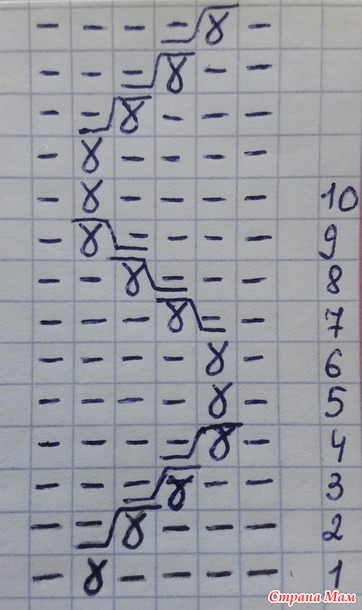 - - - - ɣ -
- - - ɣ - -
- - ɣ - - -
- ɣ - - - -
- ɣ - - - - 10
- ɣ - - - - 9
- - ɣ - - - 8
- - - ɣ - - 7
- - - - ɣ - 6
- - - - ɣ - 5
- - - - ɣ - 4
- - - ɣ - - 3
- - ɣ - - - 2
- ɣ - - - - 1
Страна Мам